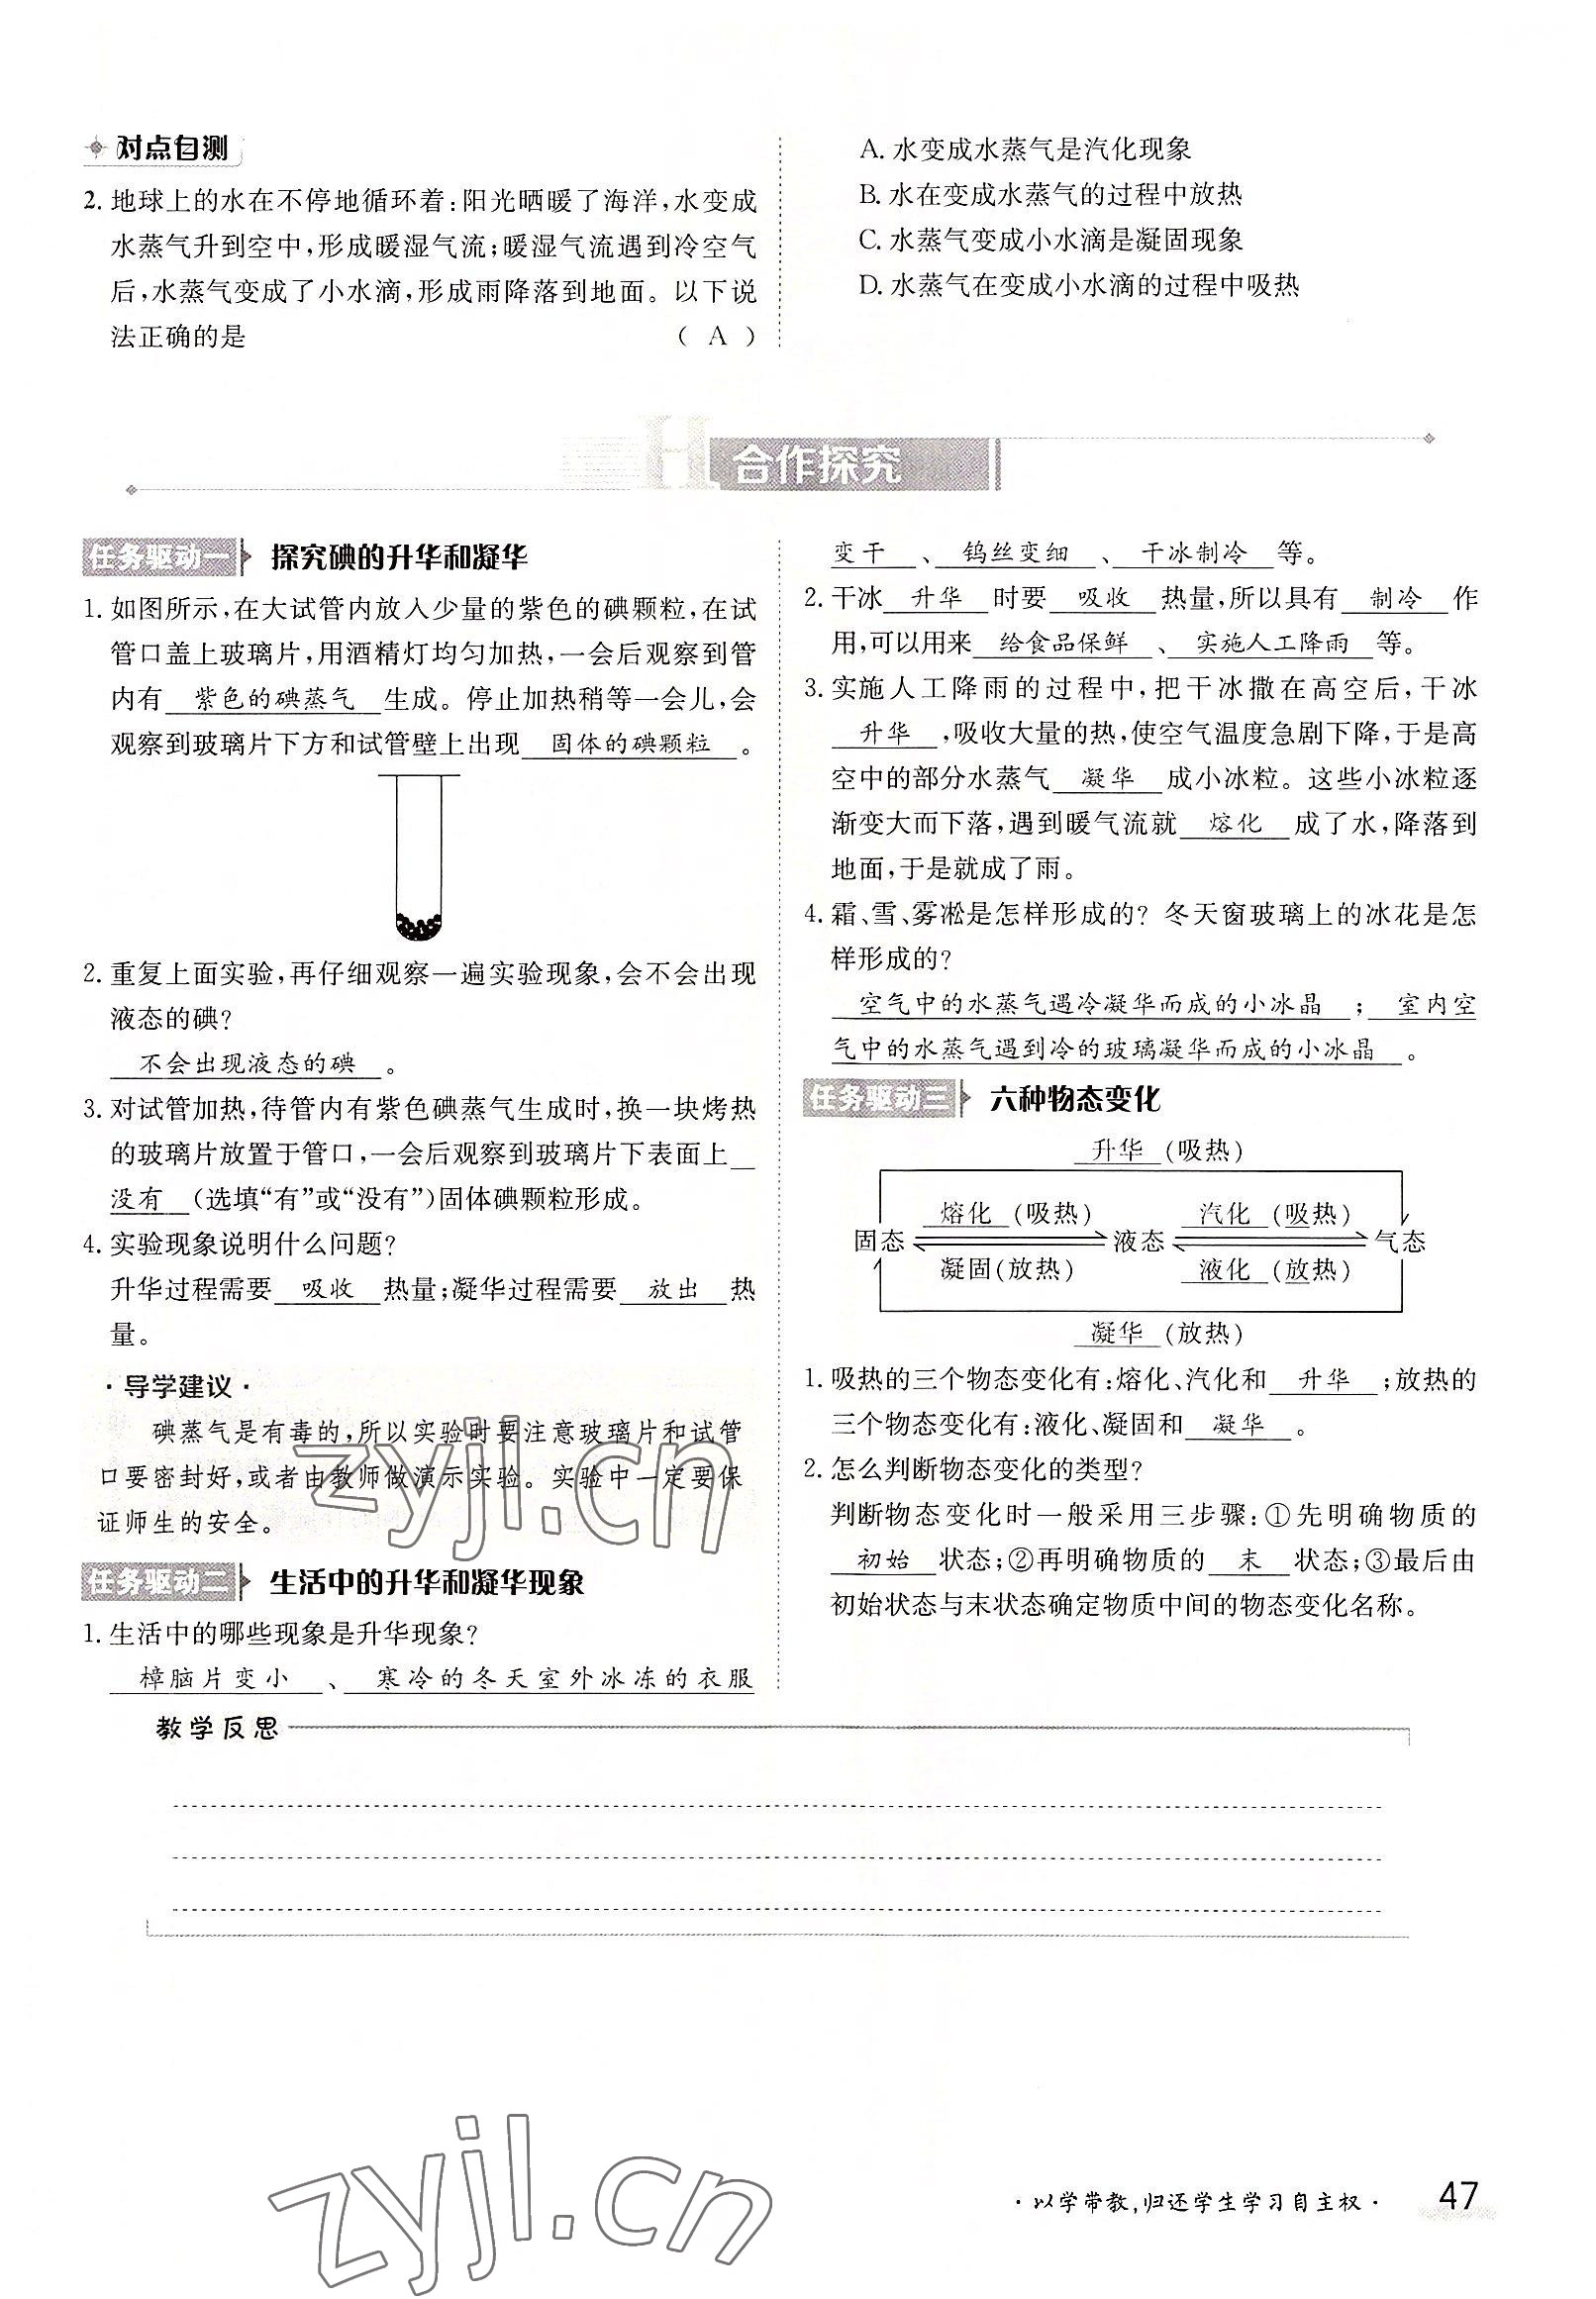 对点自测
2. 地球上的水在不停地循环着:阳光晒暖了海洋,水变成
水蒸气升到空中,形成暖湿气流;暖湿气流遇到冷空气
后,水蒸气变成了小水滴,形成雨降落到地面。以下说
法正确的是 ( A )
A. 水变成水蒸气是汽化现象
B. 水在变成水蒸气的过程中放热
C. 水蒸气变成小水滴是凝固现象
D. 水蒸气在变成小水滴的过程中吸热
H 合作探究
任务驱动一 探究碘的升华和凝华
1. 如图所示,在大试管内放入少量的紫色的碘颗粒,在试
管口盖上玻璃片,用酒精灯均匀加热,一会后观察到管
内有 紫色的碘蒸气 生成。停止加热稍等一会儿,会
观察到玻璃片下方和试管壁上出现 固体的碘颗粒 。
2. 重复上面实验,再仔细观察一遍实验现象,会不会出现
液态的碘?
不会出现液态的碘 。
3. 对试管加热,待管内有紫色碘蒸气生成时,换一块烤热
的玻璃片放置于管口,一会后观察到玻璃片下表面上
没有 (选填“有”或“没有”)固体碘颗粒形成。
4. 实验现象说明什么问题?
升华过程需要 吸收 热量;凝华过程需要 放出 热
量。
·导学建议·
碘蒸气是有毒的,所以实验时要注意玻璃片和试管
口要密封好,或者由教师做演示实验。实验中一定要保
证师生的安全。
任务驱动二 生活中的升华和凝华现象
1. 生活中的哪些现象是升华现象?
樟脑片变小 、 寒冷的冬天室外冰冻的衣服
变干 、 钨丝变细 、 干冰制冷 等。
2. 干冰 升华 时要 吸收 热量,所以具有 制冷 作
用,可以用来 给食品保鲜 、 实施人工降雨 等。
3. 实施人工降雨的过程中,把干冰撒在高空后,干冰
升华 ,吸收大量的热,使空气温度急剧下降,于是高
空中的部分水蒸气 凝华 成小冰粒。这些小冰粒逐
渐变大而下落,遇到暖气流就 熔化 成了水,降落到
地面,于是就成了雨。
4. 霜、雪、雾凇是怎样形成的? 冬天窗玻璃上的冰花是怎
样形成的?
空气中的水蒸气遇冷凝华而成的小冰晶 ; 室内空
气中的水蒸气遇到冷的玻璃凝华而成的小冰晶 。
任务驱动三 六种物态变化
升华 (吸热)
熔化 (吸热) 汽化 (吸热)
固态 液态 气态
凝固(放热) 液化 (放热)
凝华 (放热)
1. 吸热的三个物态变化有:熔化、汽化和 升华 ;放热的
三个物态变化有:液化、凝固和 凝华 。
2. 怎么判断物态变化的类型?
判断物态变化时一般采用三步骤:①先明确物质的
初始 状态;②再明确物质的 末 状态;③最后由
初始状态与末状态确定物质中间的物态变化名称。
zyjl.cn
教学反思
zyjl.cn
·以学带教,归还学生学习自主权· 47